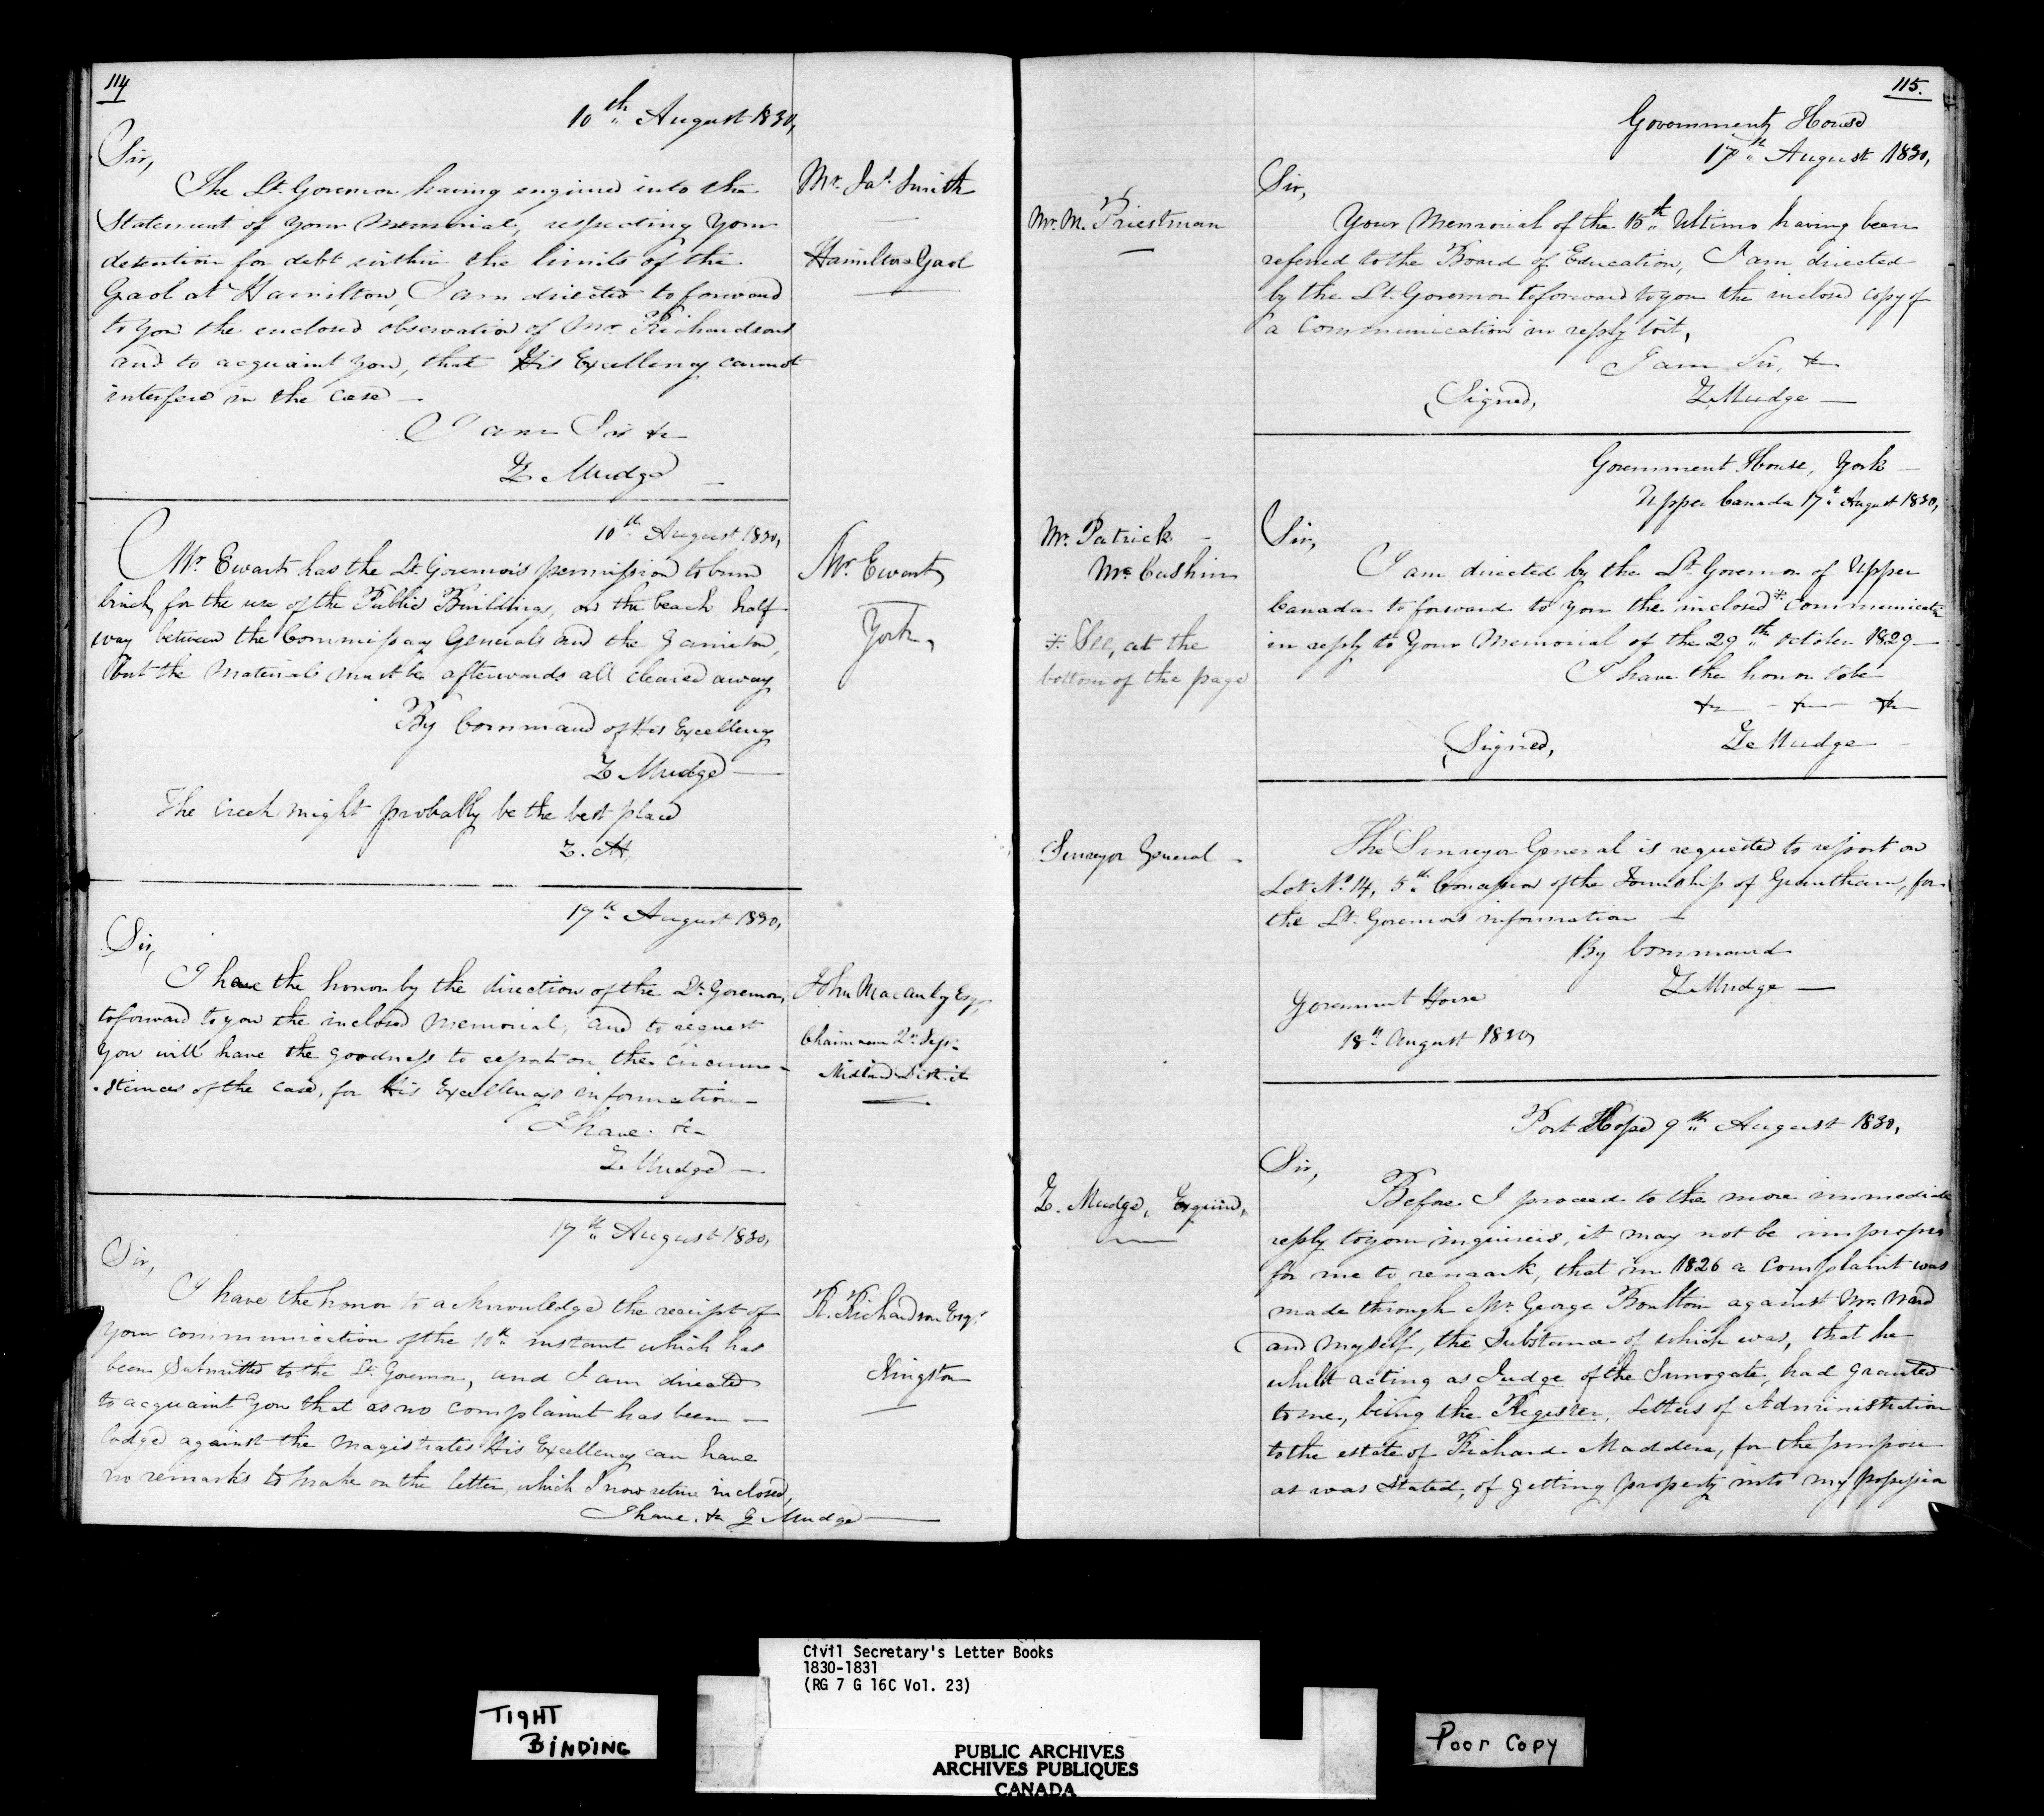 114
10th August 1830,
Sir,
The Lt. Governor having enquired into the
Statement of your Memorial, respecting your
detention for debt within the limits of the
Gaol at Hamilton, I am directed to forward
to you the enclosed observation of Mr. Richardson
and to acquaint you, that His Excellency cannot
interfere in the case —
I am Sir &c
Z Mudge —
Mr. Jas. Smith
Hamilton Gaol
10th August 1830,
Mr. Ewart has the Lt. Governor's permission to burn
brick, for the use of the Public Buildings, on the beach half
way between the Commissary Generals and the
but the Materials must be afterwards all cleared away
By Command of His Excellency
Z Mudge —
The creek might probably be the best place
Z. M.
Mr. Ewart,
York,
17th August 1830,
Sir,
I have the honor by the direction of the Lt. Governor,
to forward to you the inclosed Memorial, and to request
you will have the goodness to report on the circum-
-stances of the case, for His Excellency's information —
I have &c
Z Mudge —
John Macaulay Esqr,
Chairman Qr. Sess.
Midland District
17th August 1830,
Sir,
I have the honor to acknowledge the receipt of
your communication of the 10th instant which has
been Submitted to the Lt. Governor, and I am directed
to acquaint you that as no complaint has been —
lodged against the Magistrates His Excellency can have
no remarks to make on the letter, which I now return inclosed,
I have. &c Z Mudge —
R. Richardson Esqr.
Kingston
115.
Government House
17th August 1830,
Mr. M. Priestman
Sir,
Your Memorial of the 15th Ultimo having been
referred to the Board of Education, I am directed
by the Lt. Governor to forward to you the inclosed copy of
a Communication in reply to it,
I am Sir, &c
(Signed, Z Mudge —
Government House, York —
Upper Canada 17th August 1830,
Mr. Patrick —
McCushin
* See, at the
bottom of the page
Sir,
I am directed by the Lt. Governor of Upper
Canada to forward to you the inclosed * Communication
in reply to Your Memorial of the 29th October 1829 —
I have the honor to be
&c — &c — &c
(Signed, Z Mudge —
Surveyor General —
The Surveyor General is requested to report on
Lot No. 14, 5th Concession of the Township of Grantham, for
the Lt. Governors information —
By Command
Z Mudge —
Government House
18th August 1830,
Port Hope 9th August 1830,
Z. Mudge, Esquire,
Sir,
Before I proceed to the more immediate
reply to your inquiries, it may not be improper
for me to remark, that in 1826 a Complaint was
made through Mr. George Boulton against Mr. Ward
and myself, the Substance of which was, that he
whilst acting as Judge of the Surrogate, had granted
to me, being the Register, Letters of Administration
to the estate of Richard Madden, for the purpose
as was Stated, of getting property into my possession
Civil Secretary's Letter Books
1830-1831
(RG 7 G 16C Vol. 23)
TIGHT
BINDING
PUBLIC ARCHIVES
ARCHIVES PUBLIQUES
CANADA
Poor Copy